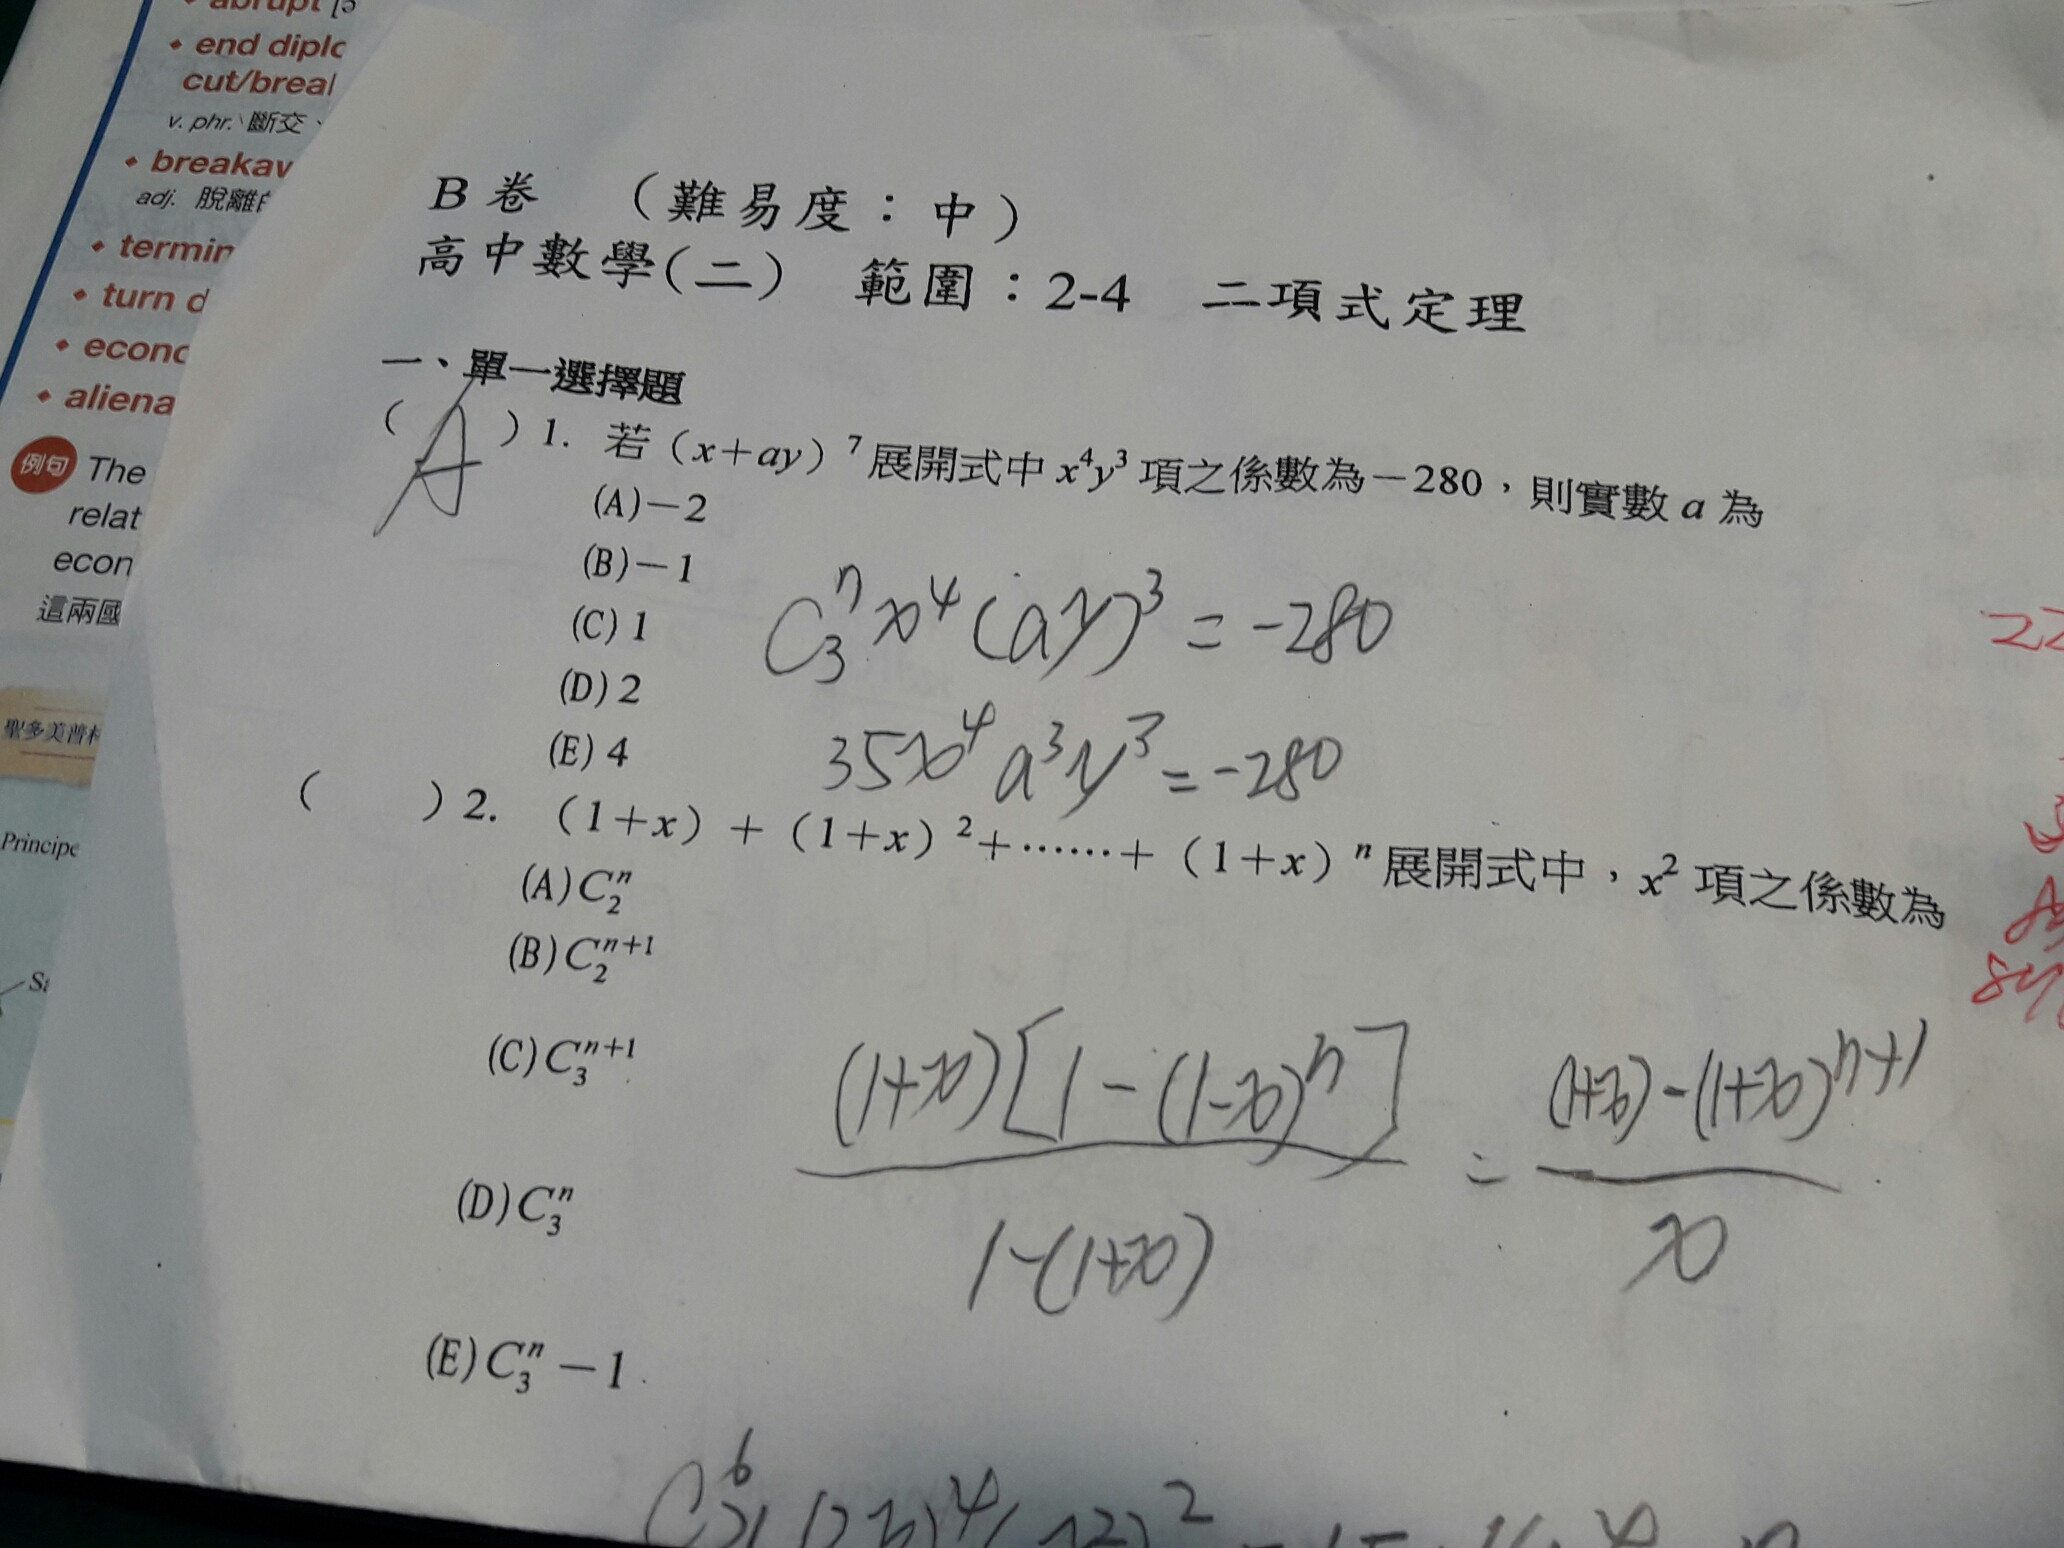 end diplo
cut/break
v. phr. 斷交、
breakaw
adj. 脫離的
termin
turn d
econo
aliena
例句 The
relat
econ
這兩國
聖多美普林
Principe
B 卷 （難易度：中）
高中數學(二) 範圍：2-4 二項式定理
一、單一選擇題
( A ) 1. 若（x+ay）⁷展開式中 x⁴y³ 項之係數為－280，則實數 a 為
(A)－2
(B)－1
(C) 1
(D) 2
(E) 4
C₃ⁿ x⁴ (ay)³ = -280
35x⁴ a³y³ = -280
( ) 2. （1+x）+（1+x）²+……+（1+x）ⁿ 展開式中，x² 項之係數為
(A) C₂ⁿ
(B) C₂ⁿ⁺¹
(C) C₃ⁿ⁺¹
(D) C₃ⁿ
(E) C₃ⁿ－1
(1+x)[1-(1-x)ⁿ] / 1-(1+x) = (1+x)-(1+x)ⁿ⁺¹ / x